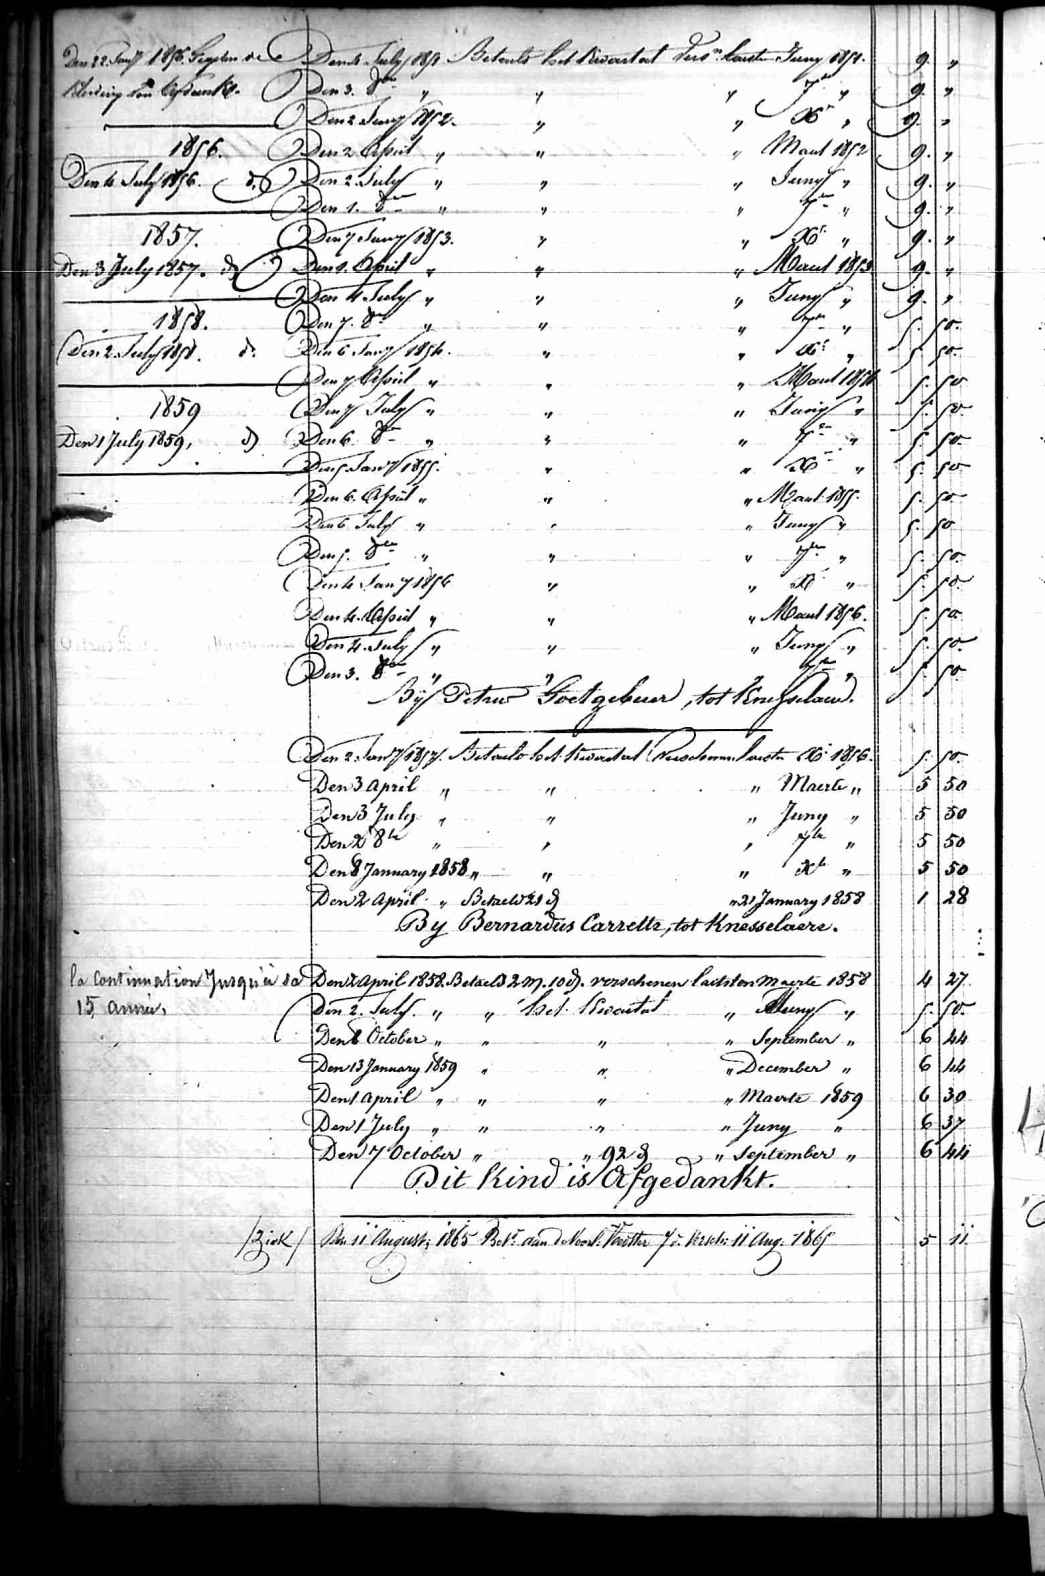 Den 22 Jany 1856. de Den 4 July 1851 Betaelt het Kwartael Vers.n laeste Juny 1851. 9. "
Kleeding Den 3. 8bre " " " 7bre " 9. "
Den 2 Jany 1852. " " Xbr " 9. "
1856. Den 2 April " " " Maert 1852 9. "
Den 4 July 1856. d. Den 2. July " " " Juny " 9. "
Den 1. 8bre " " " 7bre " 9. "
1857. Den 7 Jany 1853. " " Xbr " 9. "
Den 3 July 1857. d Den 1. April " " " Maert 1853 9. "
Den 4 July " " " Juny " 9. "
1858. Den 7. 8bre " " " 7bre " 5. 50.
Den 2 July 1858. d. Den 6 Jany 1854. " " Xbr " 5. 50.
Den 7 April " " " Maert 1854 5. 50
1859 Den 7 July " " " Juny " 5. 50.
Den 1 July 1859, d Den 6. 8bre " " " 7bre " 5. 50
Den 5 Jany 1855. " " Xbr " 5. 50
Den 6. April " " " Maert 1855. 5. 50.
Den 6 July " " " Juny " 5. 50
Den 5. 8bre " " " 7bre " 5. 50.
Den 4 Jany 1856 " " Xbr " 5. 50.
Den 4. April " " " Maert 1856. 5. 50.
Den 4. July " " " Juny " 5. 50.
Den 3. 8bre " " " 7bre " 5. 50.
Bij Petrus Goetgebuer, tot Knesselaere.
Den 2. Jany 1857. Betaelt het Kwartael Verschenen laeste Xbr 1856. 5. 50.
Den 3 April " " " Maerte " 5 50
Den 3 July " " " Juny " 5 50
Den 2 8br " " " 7br " 5 50
Den 8 January 1858 " " " Xbr " 5 50
Den 2 April " Betaelt 21 d " 21 January 1858 1 28
By Bernardus Carrette, tot Knesselaere.
la continuation Jusqu'à sa Den 2 April 1858. Betaelt 2 m. 10 d. verschenen laetsten Maerte 1858 4 27
15e année. Den 2. July. " " het Kwartael " Juny " 5. 50.
Den 8 October " " " " September " 6 44
Den 13 January 1859 " " " December " 6 44
Den 1 April " " " " Maerte 1859 6 30
Den 1 July " " " " Juny " 6 37
Den 7 October " " 92 d " September " 6 44
Dit kind is Afgedankt.
/Ziek/ Den 11 Augusti 1865 Bet. aen 11 Aug. 1865 5 11